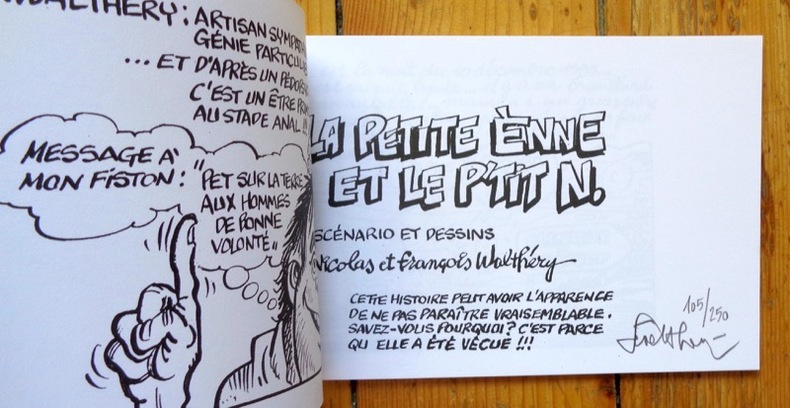 WALTHÉRY : ARTISAN
GÉNIE
... ET D'APRÈS UN
C'EST UN ÊTRE
AU STADE ANAL !!!
MESSAGE À
MON FISTON :
"PET SUR LA TERRE
AUX HOMMES
DE BONNE
VOLONTÉ"
LA PETITE ÈNNE
ET LE P'TIT N.
SCÉNARIO ET DESSINS
Nicolas et François Walthéry
CETTE HISTOIRE PEUT AVOIR L'APPARENCE
DE NE PAS PARAÎTRE VRAISEMBLABLE.
SAVEZ-VOUS POURQUOI ? C'EST PARCE
QU ELLE A ÉTÉ VÉCUE !!!
105/250